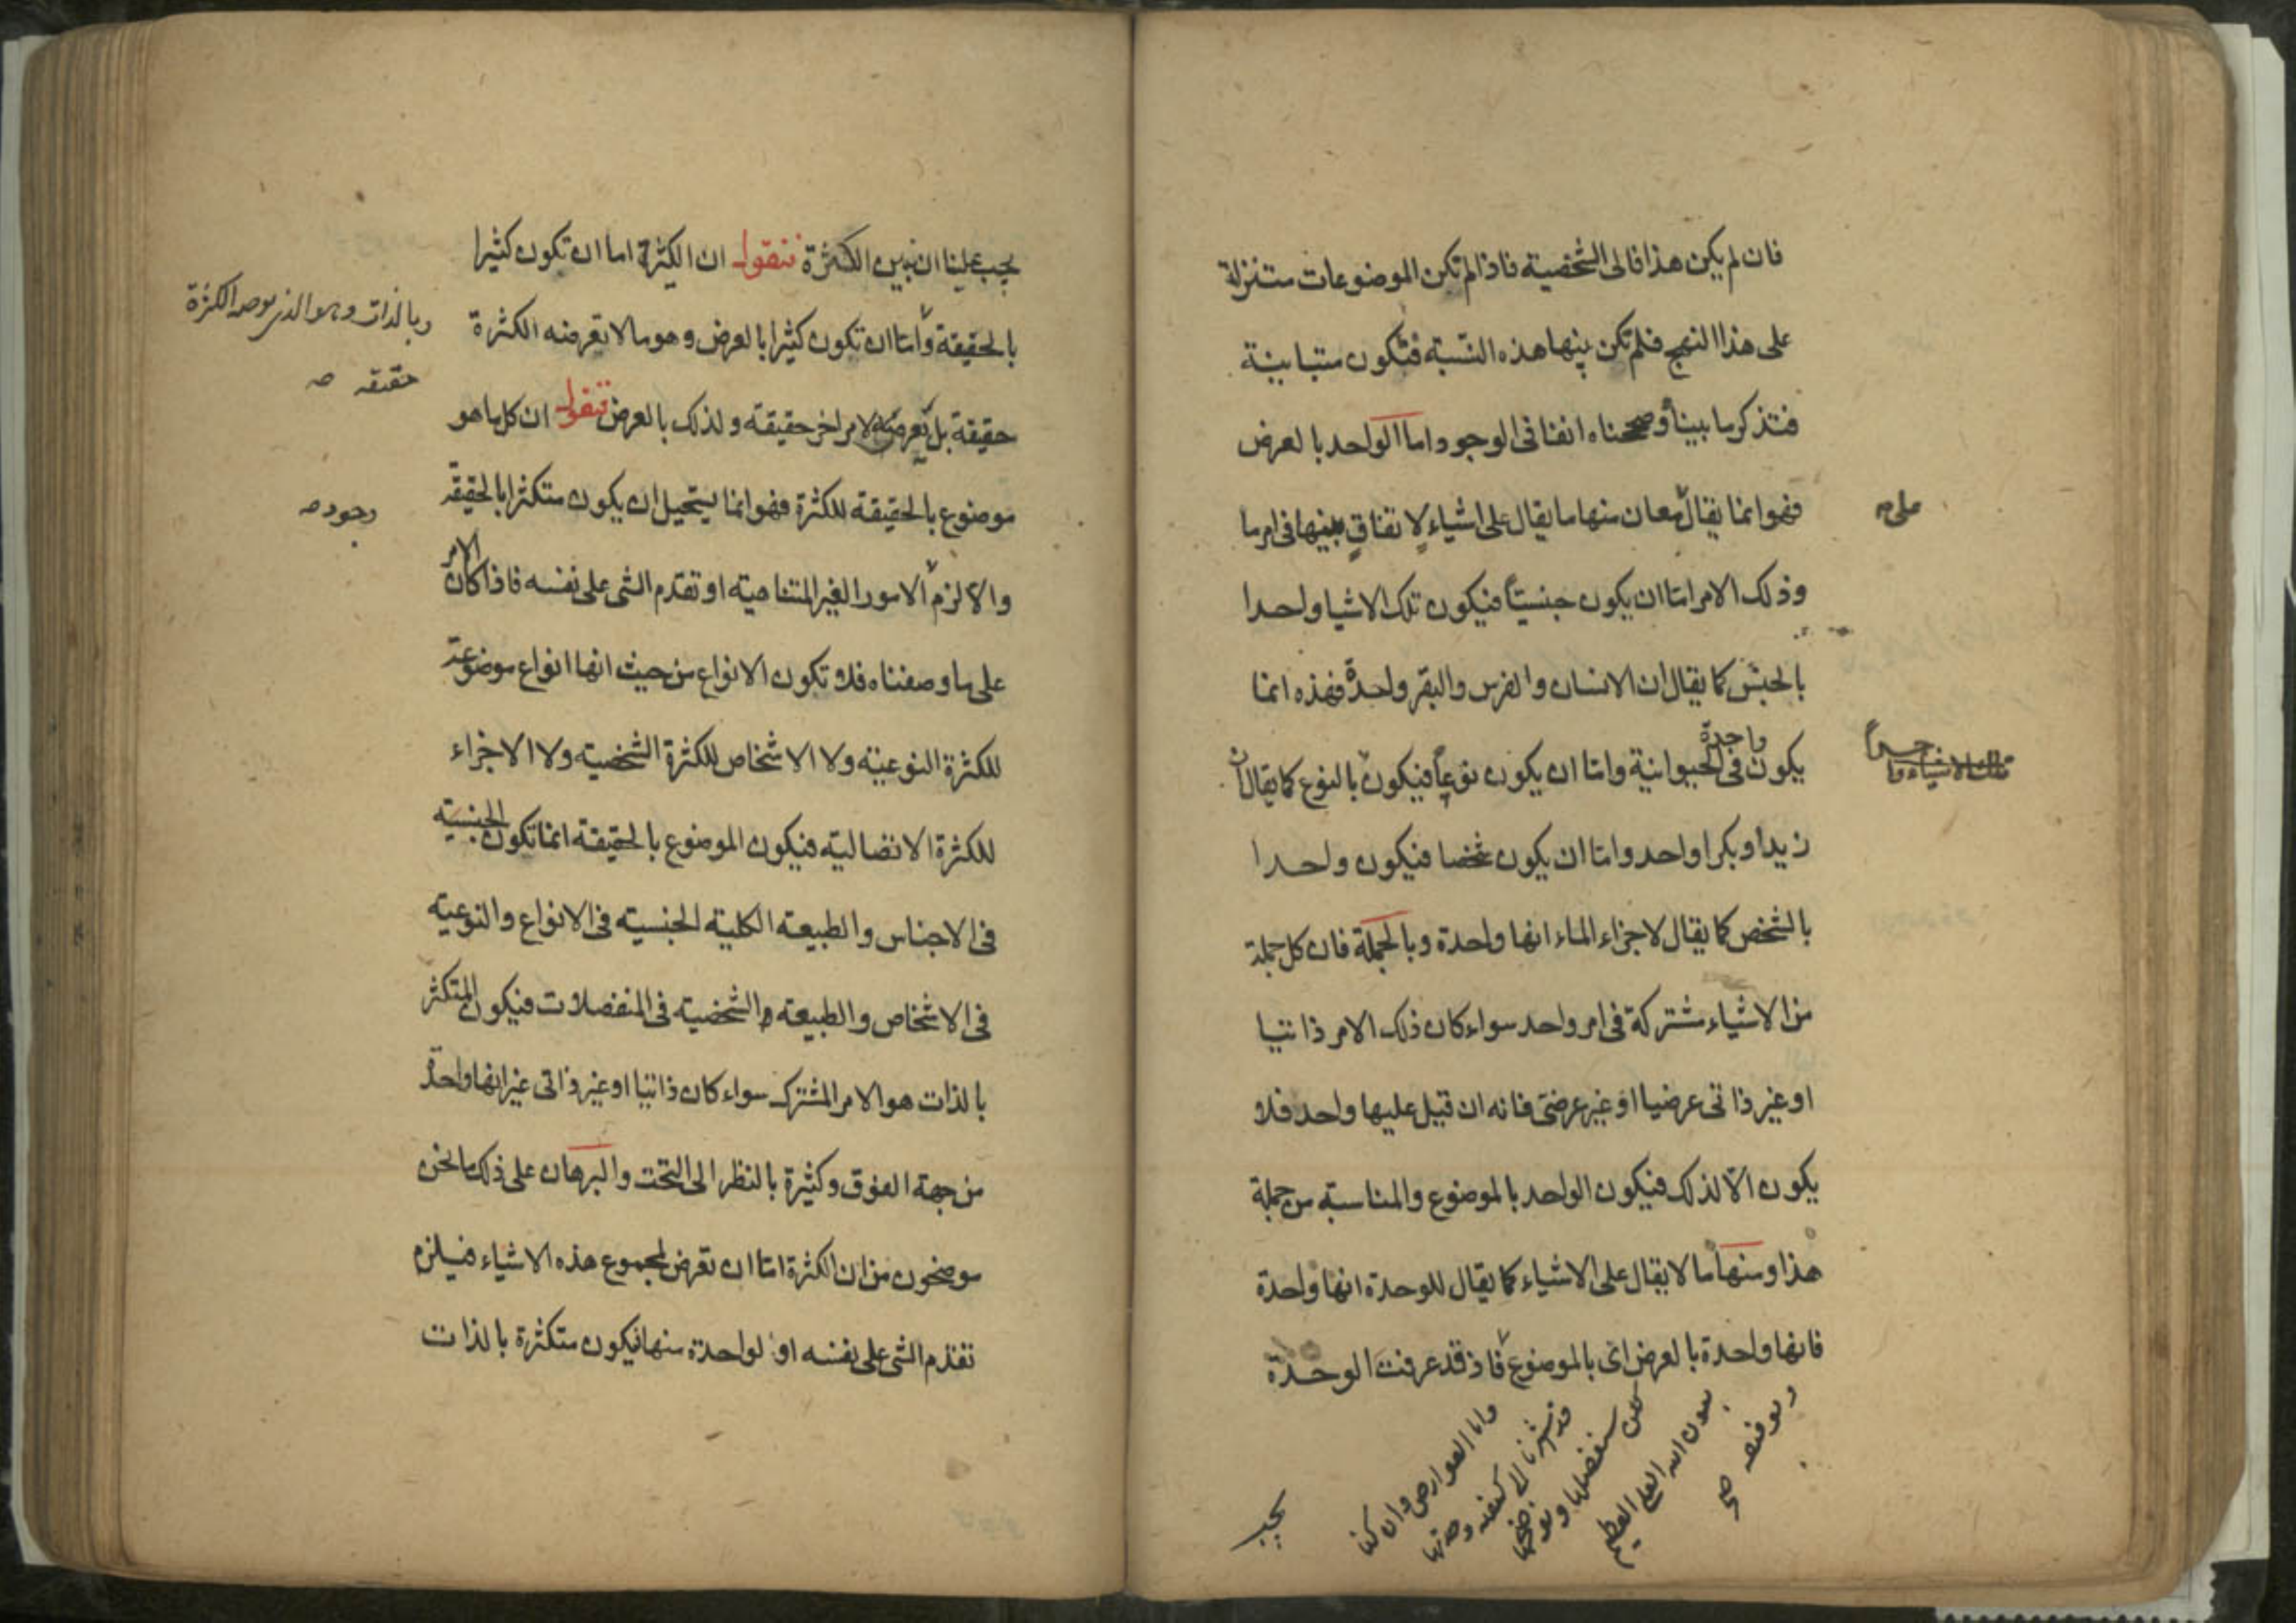 فان لم يكن هذا فالى الشخصية فاذا لم تكن الموضوعات متنزلة
على هذا النهج فلم تكن بينها هذه النسبة فتكون متباينة
فتذكر ما بينا وصححناه انفا فى الوجود واما الواحد بالعرض
فهو انما يقال لمعان منها ما يقال على اشياء لا تفاق بينها فى امر ما
وذلك الامر اما ان يكون جنسيا فيكون تلك الاشيا واحدا
بالجنس كما يقال ان الانسان والفرس والبقر واحدة فهذه انما
يكون واحدة فى الحيوانية واما ان يكون نوعيا فيكون بالنوع كما يقال ان
زيدا وبكرا واحد واما ان يكون شخصا فيكون واحدا
بالشخص كما يقال لاجزاء الماء انها واحدة وبالجملة فان كل جملة
من الاشياء مشتركة فى امر واحد سواء كان ذلك الامر ذاتيا
او غير ذاتى عرضيا او غير عرضى فانه ان قيل عليها واحد فلا
يكون الا لذلك فيكون الواحد بالموضوع والمناسبة من جملة
هذا ومنها ما لا يقال على الاشياء كما يقال للوحدة انها واحدة
فانها واحدة بالعرض اى بالموضوع فاذ قد عرفت الوحدة
على صح
تلك الاشياء وا
واما العوارض وان كنا
قد اشرنا الى
لكن سنفصلها و
بعون الله العلى العظيم
وتوفيقه صح
يجب
يجب علينا ان نبين الكثرة فنقول ان الكثرة اما ان تكون كثيرا
بالحقيقة واما ان تكون كثيرا بالعرض وهو ما لا تعرضه الكثرة
حقيقة بل تعرضه لامر اخر حقيقة ولذلك بالعرض فنقول ان كل ما هو
موضوع بالحقيقة للكثرة فهو انما يستحيل ان يكون متكثرا بالحقيقة
والا لزم الامور الغير المتناهية او تقدم الشى على نفسه فاذا كان الامر
على ما وصفناه فلا تكون الانواع من حيث انها انواع موضوعة
للكثرة النوعية ولا الاشخاص للكثرة الشخصية ولا الاجزاء
للكثرة الانفصالية فيكون الموضوع بالحقيقة انما تكون الجنسية
فى الاجناس والطبيعة الكلية الجنسية فى الانواع والنوعية
فى الاشخاص والطبيعة الشخصية فى المنفصلات فيكون المتكثر
بالذات هو الامر المشترك سواء كان ذاتيا او غير ذاتى غير انها واحدة
من جهة الفوق وكثيرة بالنظر الى التحت والبرهان على ذلك ما نحن
موضحون من ان الكثرة اما ان تعرض لمجموع هذه الاشياء فيلزم
تقدم الشى على نفسه او لواحدة منها فيكون متكثرة بالذات
وبالذات وهو الذى تعرضه الكثرة
حقيقة صح
وجود صح